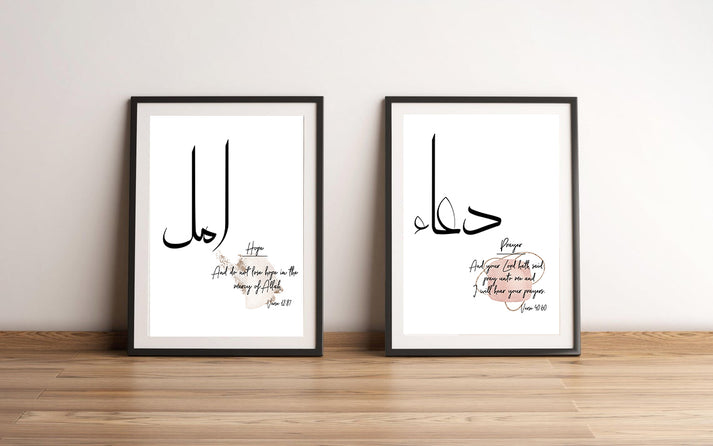 امل
Hope
And do not lose hope in the
mercy of Allah
Verse 12:87
دعاء
Prayer
And your Lord hath said
pray unto me and
I will hear your prayers.
Verse 40:60